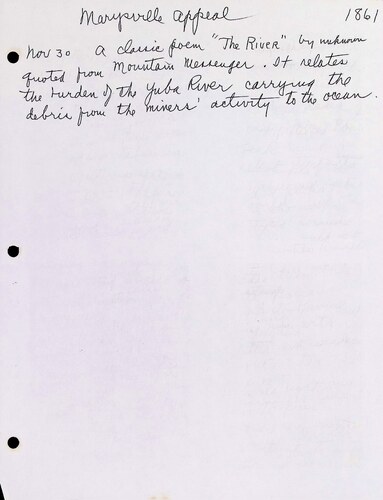 Marysville Appeal 1861
Nov 30 A classic poem "The River" by unknown
quoted from Mountain Messenger. It relates
the burden of the Yuba River carrying the
debris from the miners' activity to the ocean.